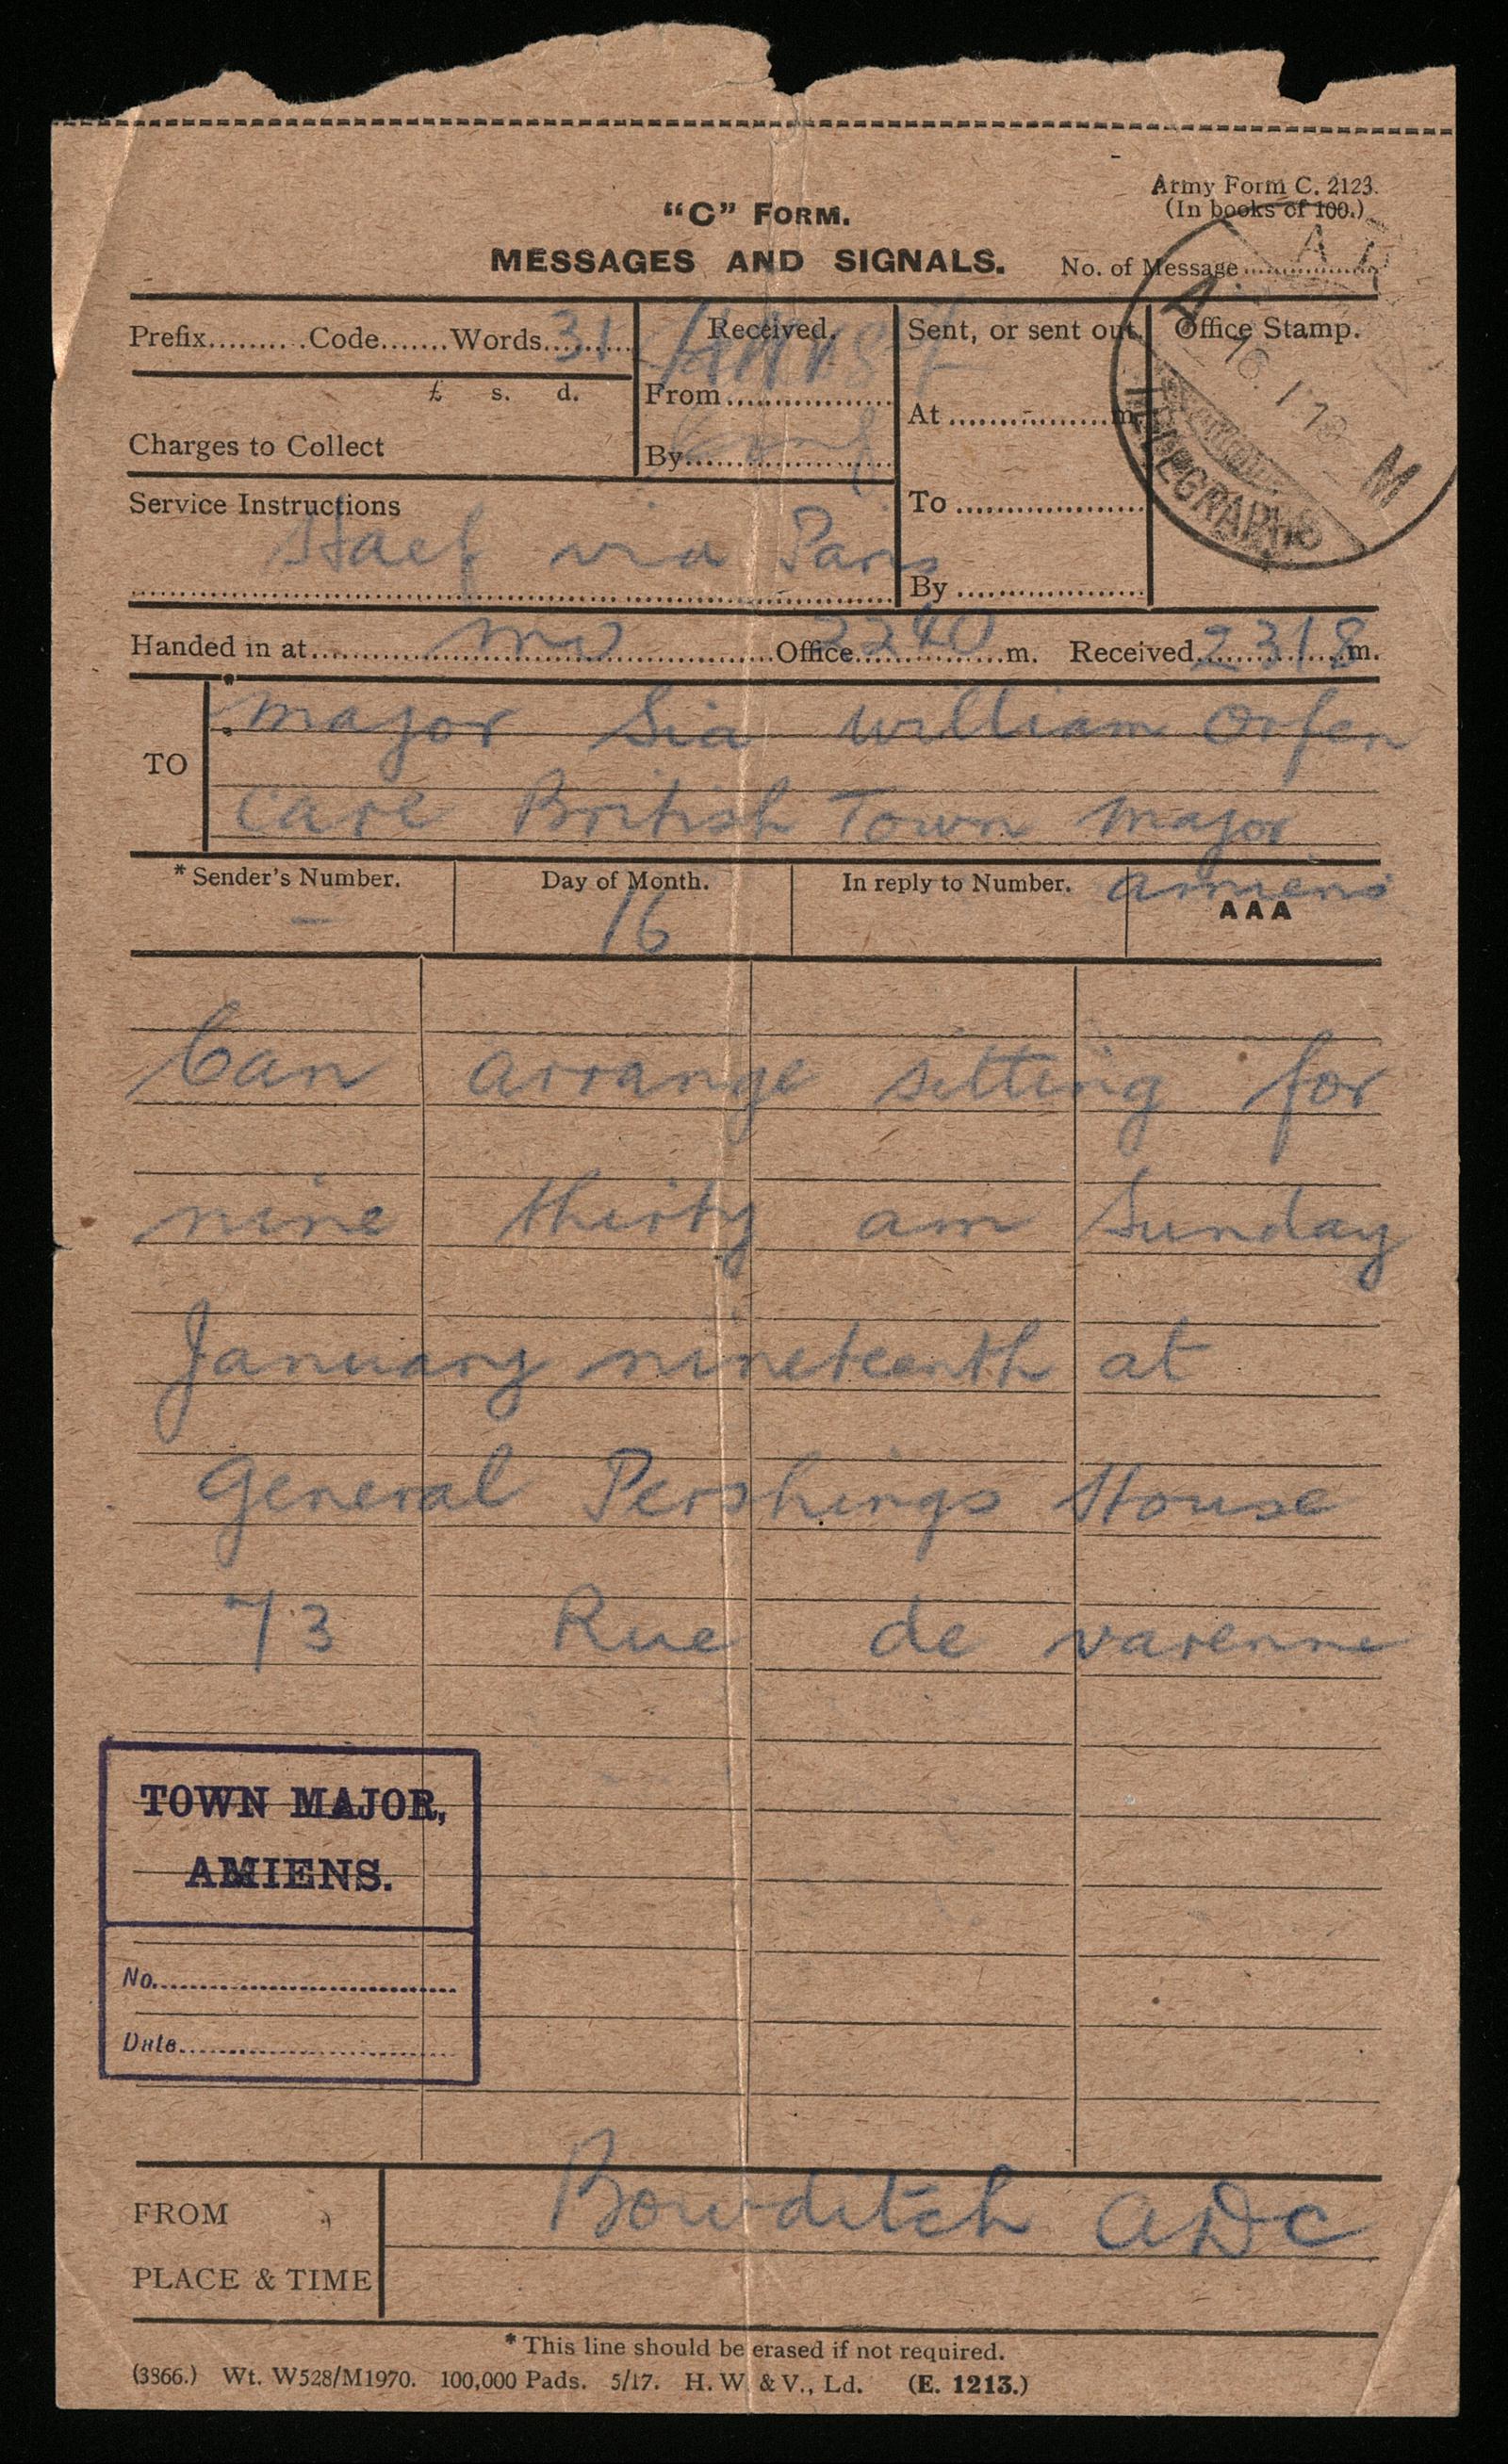 Army Form C. 2123.
(In books of 100.)
"C" FORM.
MESSAGES AND SIGNALS.
No. of Message
Prefix.........Code.......Words 31
Received.
Sent, or sent out
Office Stamp.
£ s. d.
From
At ................m.
Charges to Collect
By
Service Instructions
To
Haef via Paris
By
A. M
16.1.18
TELEGRAPHS
Handed in at ........ Office 2240 m. Received 2318 m.
TO
Major Sia William Orfen
care British Town Major
amiens
* Sender's Number.
Day of Month.
In reply to Number.
AAA
— 16
Can arrange sitting for
nine thirty am Sunday
January nineteenth at
General Pershings House
73 Rue de varenne
TOWN MAJOR,
AMIENS.
No.
Date
FROM
Bowditch ADC
PLACE & TIME
* This line should be erased if not required.
(3866.) Wt. W528/M1970. 100,000 Pads. 5/17. H. W. & V., Ld. (E. 1213.)